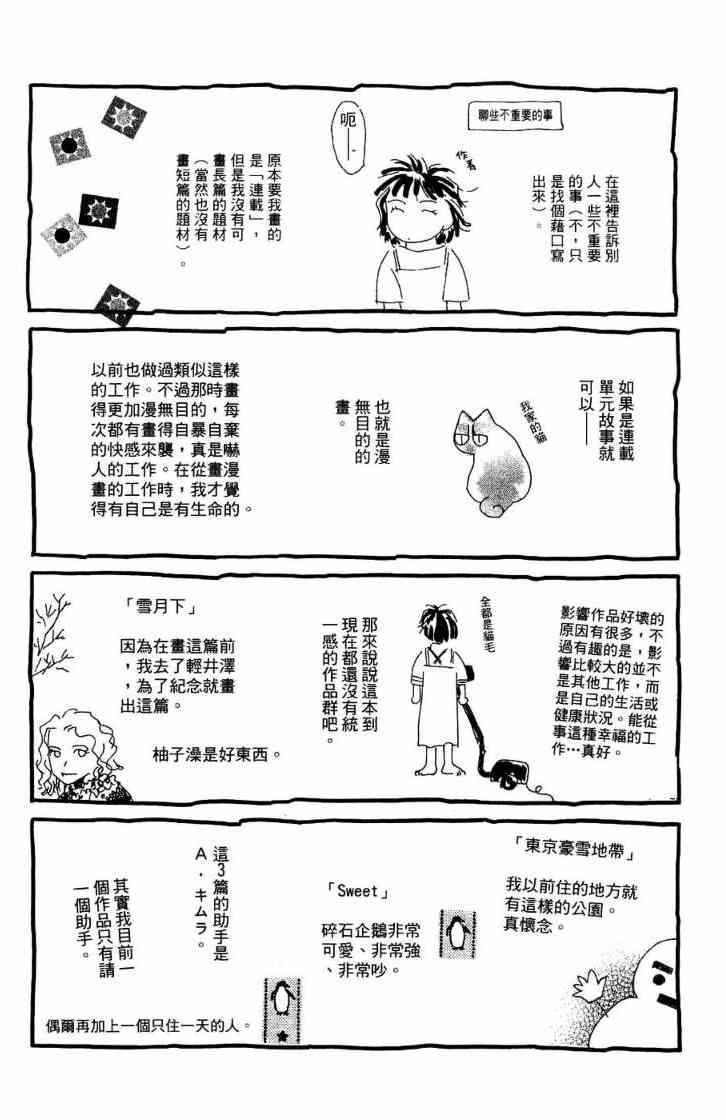 聊些不重要的事
在這裡告訴別
人一些不重要
的事（不，只
是找個藉口寫
出來）。
作者
呃—
原本要我畫的
是「連載」，
但是我沒有可
畫長篇的題材
（當然也沒有
畫短篇的題材）。
如果是連載
單元故事就
可以——
我家的貓
也就是漫
無目的的
畫。
以前也做過類似這樣
的工作。不過那時畫
得更加漫無目的，每
次都有畫得自暴自棄
的快感來襲，真是嚇
人的工作。在從畫漫
畫的工作時，我才覺
得有自己是有生命的。
影響作品好壞的
原因有很多，不
過有趣的是，影
響比較大的並不
是其他工作，而
是自己的生活或
健康狀況。能從
事這種幸福的工
作…真好。
全都是貓毛
那來說說這本到
現在都還沒有統
一感的作品群吧。
「雪月下」
因為在畫這篇前
，我去了輕井澤
，為了紀念就畫
出這篇。
柚子澡是好東西。
「東京豪雪地帶」
我以前住的地方就
有這樣的公園。
真懷念。
「Sweet」
碎石企鵝非常
可愛、非常強
、非常吵。
這3篇的助手是
A．キムラ。
其實我目前一
個作品只有請
一個助手。
偶爾再加上一個只住一天的人。